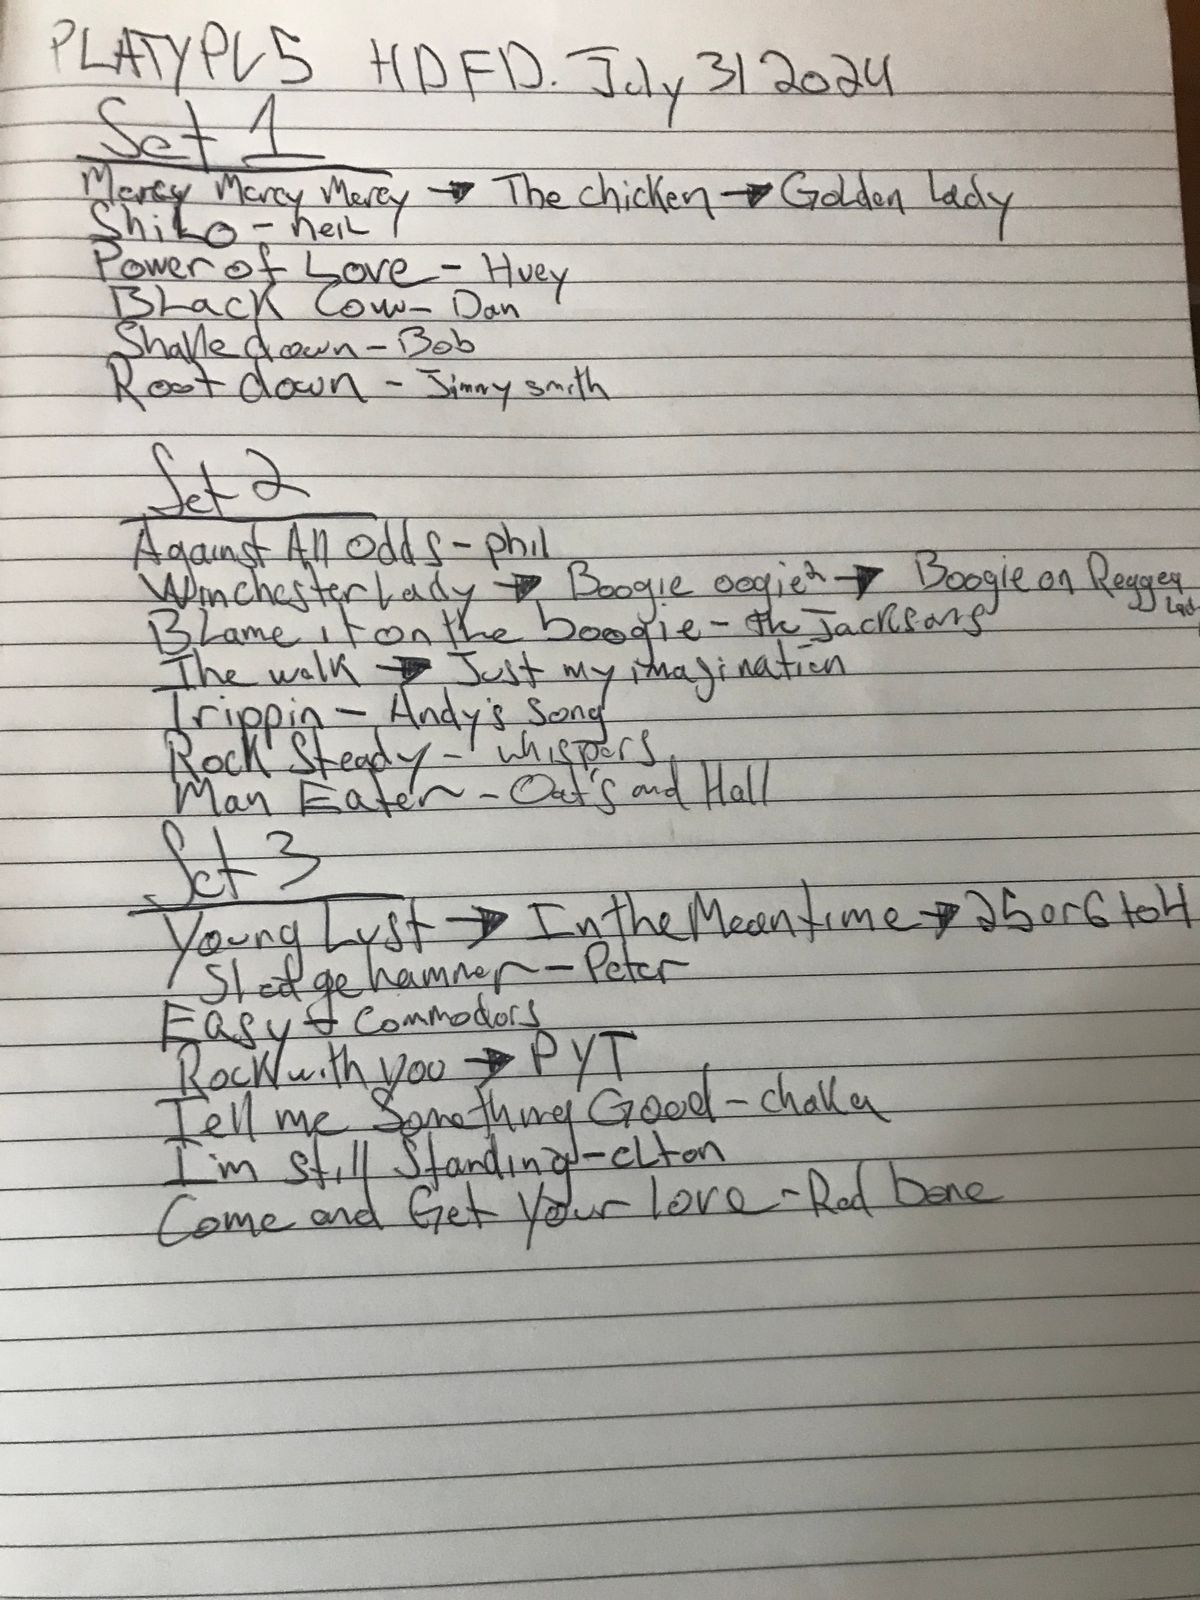 PLATYPUS HDFD. July 31 2024
Set 1
Mercy Mercy Mercy → The chicken → Golden Lady
Shilo - neil
Power of Love - Huey
Black Cow - Dan
Shake down - Bob
Root down - Jimmy smith
Set 2
Against All Odds - phil
Winchester Lady → Boogie oogie² → Boogie on Reggea
Lady
Blame it on the boogie - the Jacksons
The walk → Just my imagination
Trippin - Andy's Song
Rock Steady - whispers
Man Eater - Oat's and Hall
Set 3
Young Lust → In the Meantime → 25 or 6 to 4
Sledge hammer - Peter
Easy - Commodors
Rock with you → PYT
Tell me Something Good - chaka
I'm still Standing - elton
Come and Get Your love - Red bone